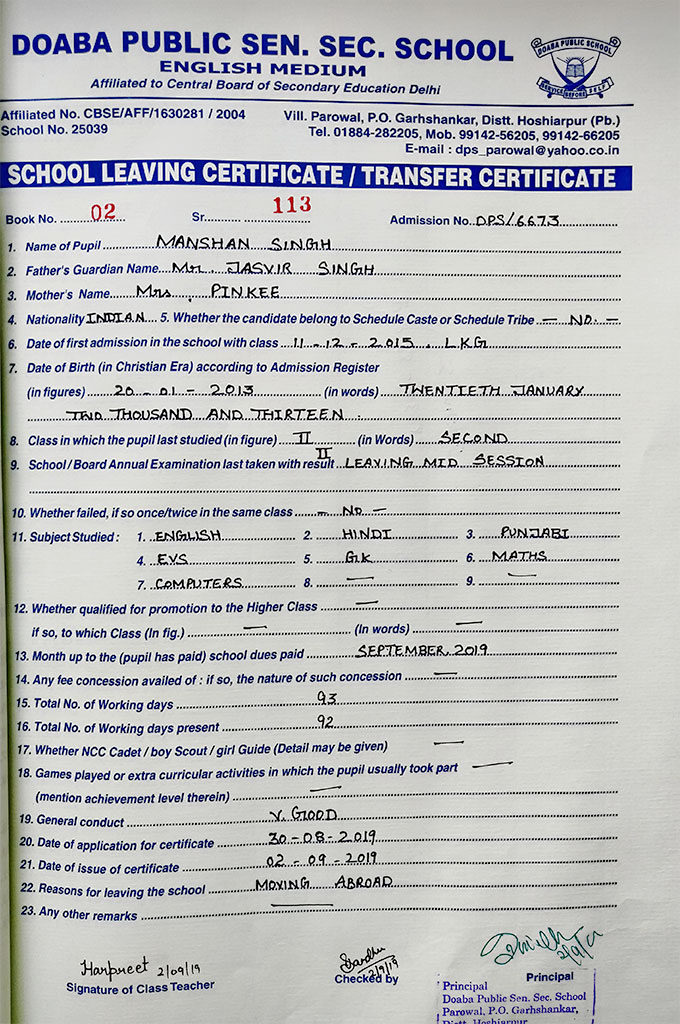 DOABA PUBLIC SEN. SEC. SCHOOL
ENGLISH MEDIUM
Affiliated to Central Board of Secondary Education Delhi
DOABA PUBLIC SCHOOL
SERVICE BEFORE SELF
Affiliated No. CBSE/AFF/1630281 / 2004
School No. 25039
Vill. Parowal, P.O. Garhshankar, Distt. Hoshiarpur (Pb.)
Tel. 01884-282205, Mob. 99142-56205, 99142-66205
E-mail : dps_parowal@yahoo.co.in
SCHOOL LEAVING CERTIFICATE / TRANSFER CERTIFICATE
Book No. 02 Sr. 113 Admission No. DPS/6673
1. Name of Pupil MANSHAN SINGH
2. Father's Guardian Name Mr. JASVIR SINGH
3. Mother's Name Mrs. PINKEE
4. Nationality INDIAN 5. Whether the candidate belong to Schedule Caste or Schedule Tribe — NO. —
6. Date of first admission in the school with class 11-12-2015. LKG
7. Date of Birth (in Christian Era) according to Admission Register
(in figures) 20-01-2013 (in words) TWENTIETH JANUARY
TWO THOUSAND AND THIRTEEN.
8. Class in which the pupil last studied (in figure) II (in Words) SECOND
9. School / Board Annual Examination last taken with result II LEAVING MID SESSION
10. Whether failed, if so once/twice in the same class — NO —
11. Subject Studied : 1. ENGLISH 2. HINDI 3. PUNJABI
4. EVS 5. GK 6. MATHS
7. COMPUTERS 8. — 9. —
12. Whether qualified for promotion to the Higher Class —
if so, to which Class (In fig.) — (In words) —
13. Month up to the (pupil has paid) school dues paid SEPTEMBER, 2019
14. Any fee concession availed of : if so, the nature of such concession —
15. Total No. of Working days 93
16. Total No. of Working days present 92
17. Whether NCC Cadet / boy Scout / girl Guide (Detail may be given) —
18. Games played or extra curricular activities in which the pupil usually took part —
(mention achievement level therein) —
19. General conduct V. GOOD
20. Date of application for certificate 30-08-2019
21. Date of issue of certificate 02-09-2019
22. Reasons for leaving the school MOVING ABROAD
23. Any other remarks —
Harpreet 2/09/19
Signature of Class Teacher
2/9/19
Checked by
Principal
Principal
Doaba Public Sen. Sec. School
Parowal, P.O. Garhshankar,
Distt. Hoshiarpur